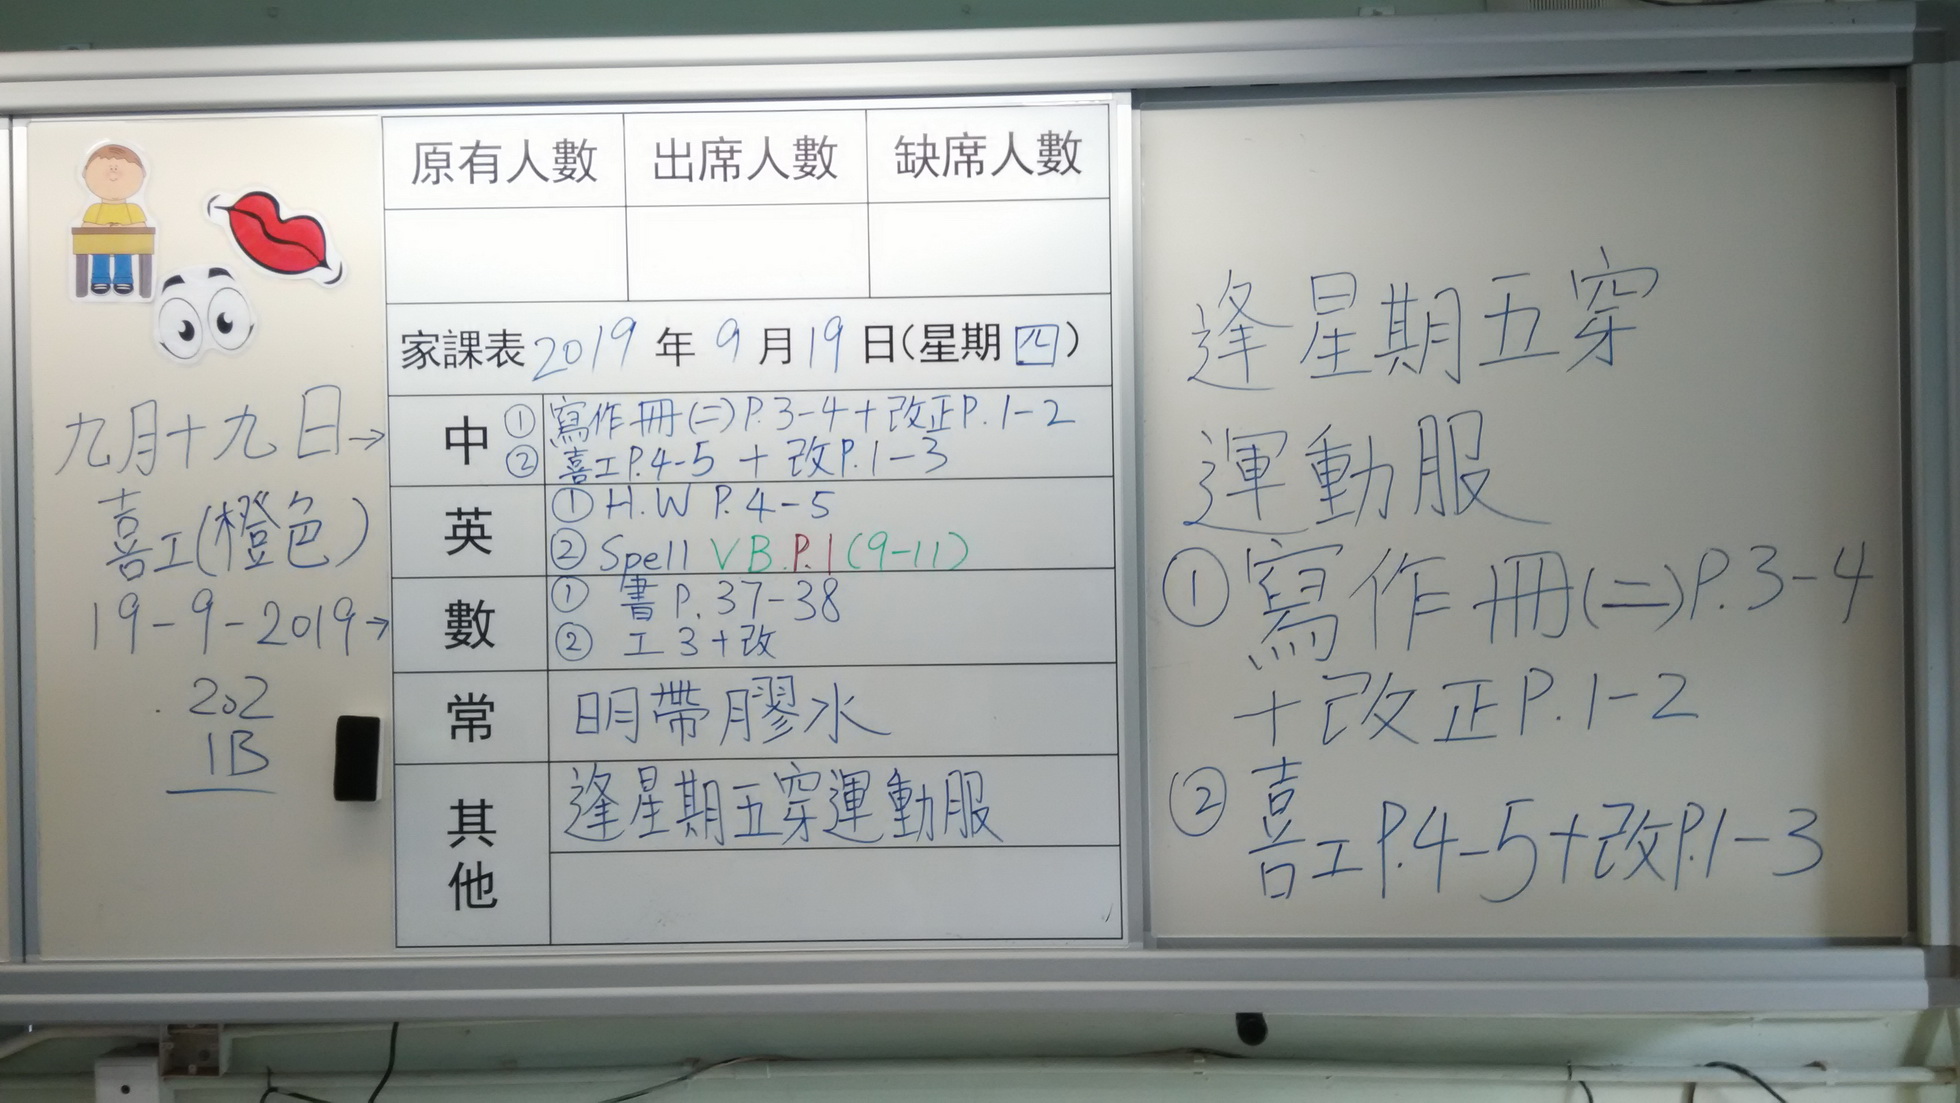 九月十九日→
喜工(橙色)
19-9-2019→
202
1B
原有人數 出席人數 缺席人數
家課表 2019 年 9 月 19 日(星期 四)
中 ① 寫作冊(二)P.3-4+改正P.1-2
② 喜工P.4-5 + 改P.1-3
英 ① H.W P.4-5
② Spell VB.P.1(9-11)
數 ① 書 P.37-38
② 工 3+改
常 明帶膠水
其他 逢星期五穿運動服
逢星期五穿
運動服
① 寫作冊(二)P.3-4
+改正P.1-2
② 喜工P.4-5+改P.1-3